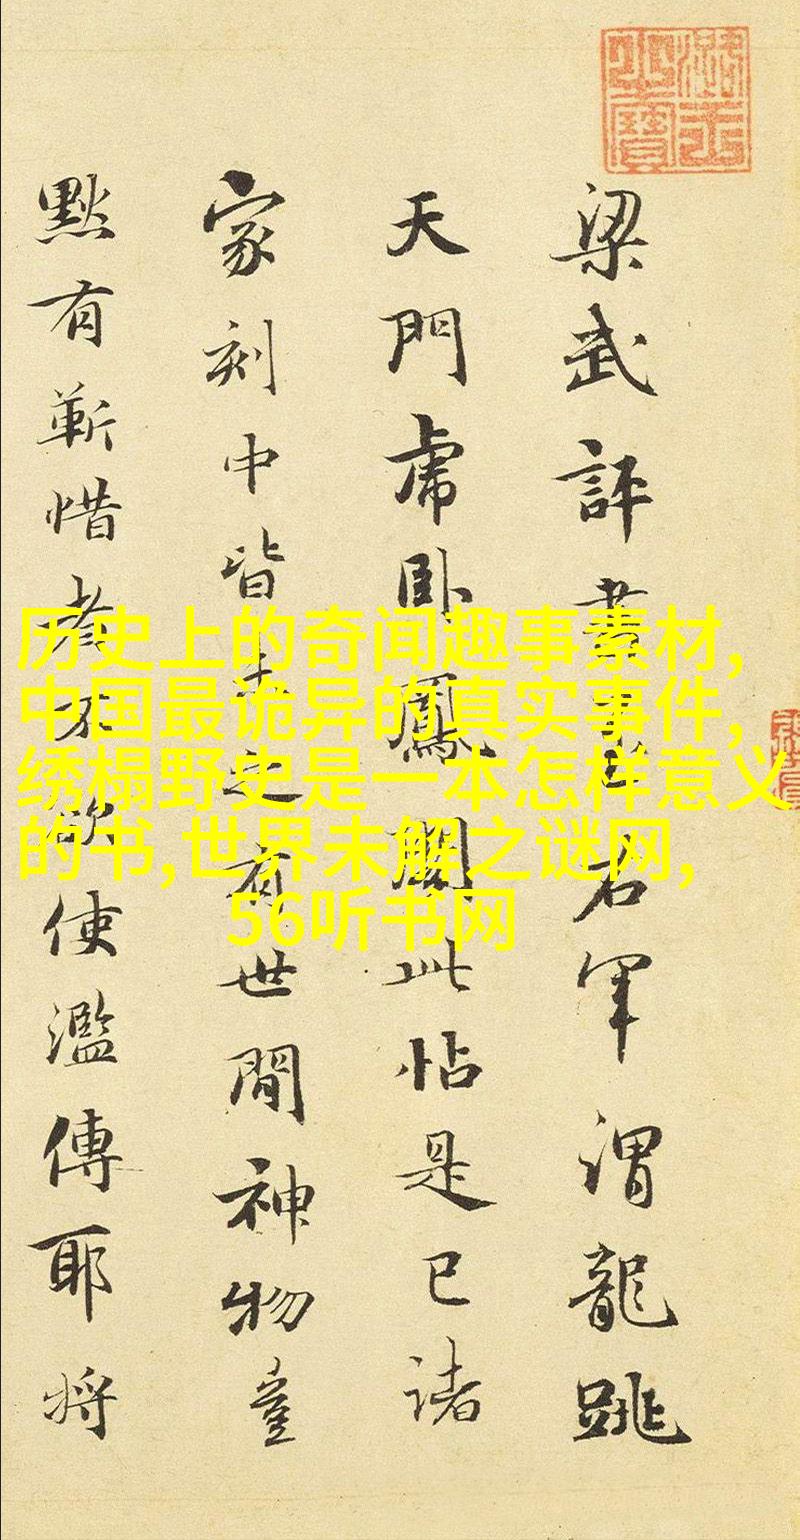 梁武評書至右軍謂龍跳
天門虎卧鳳閣此帖是已諸
家刻中皆未之有世間神物豈
黙有靳惜者不欲使濫傳耶將
历史上的奇闻趣事素材,
中国最诡异的真实事件,
绣榻野史是一本怎样意义
的书,世界未解之谜网,
56听书网